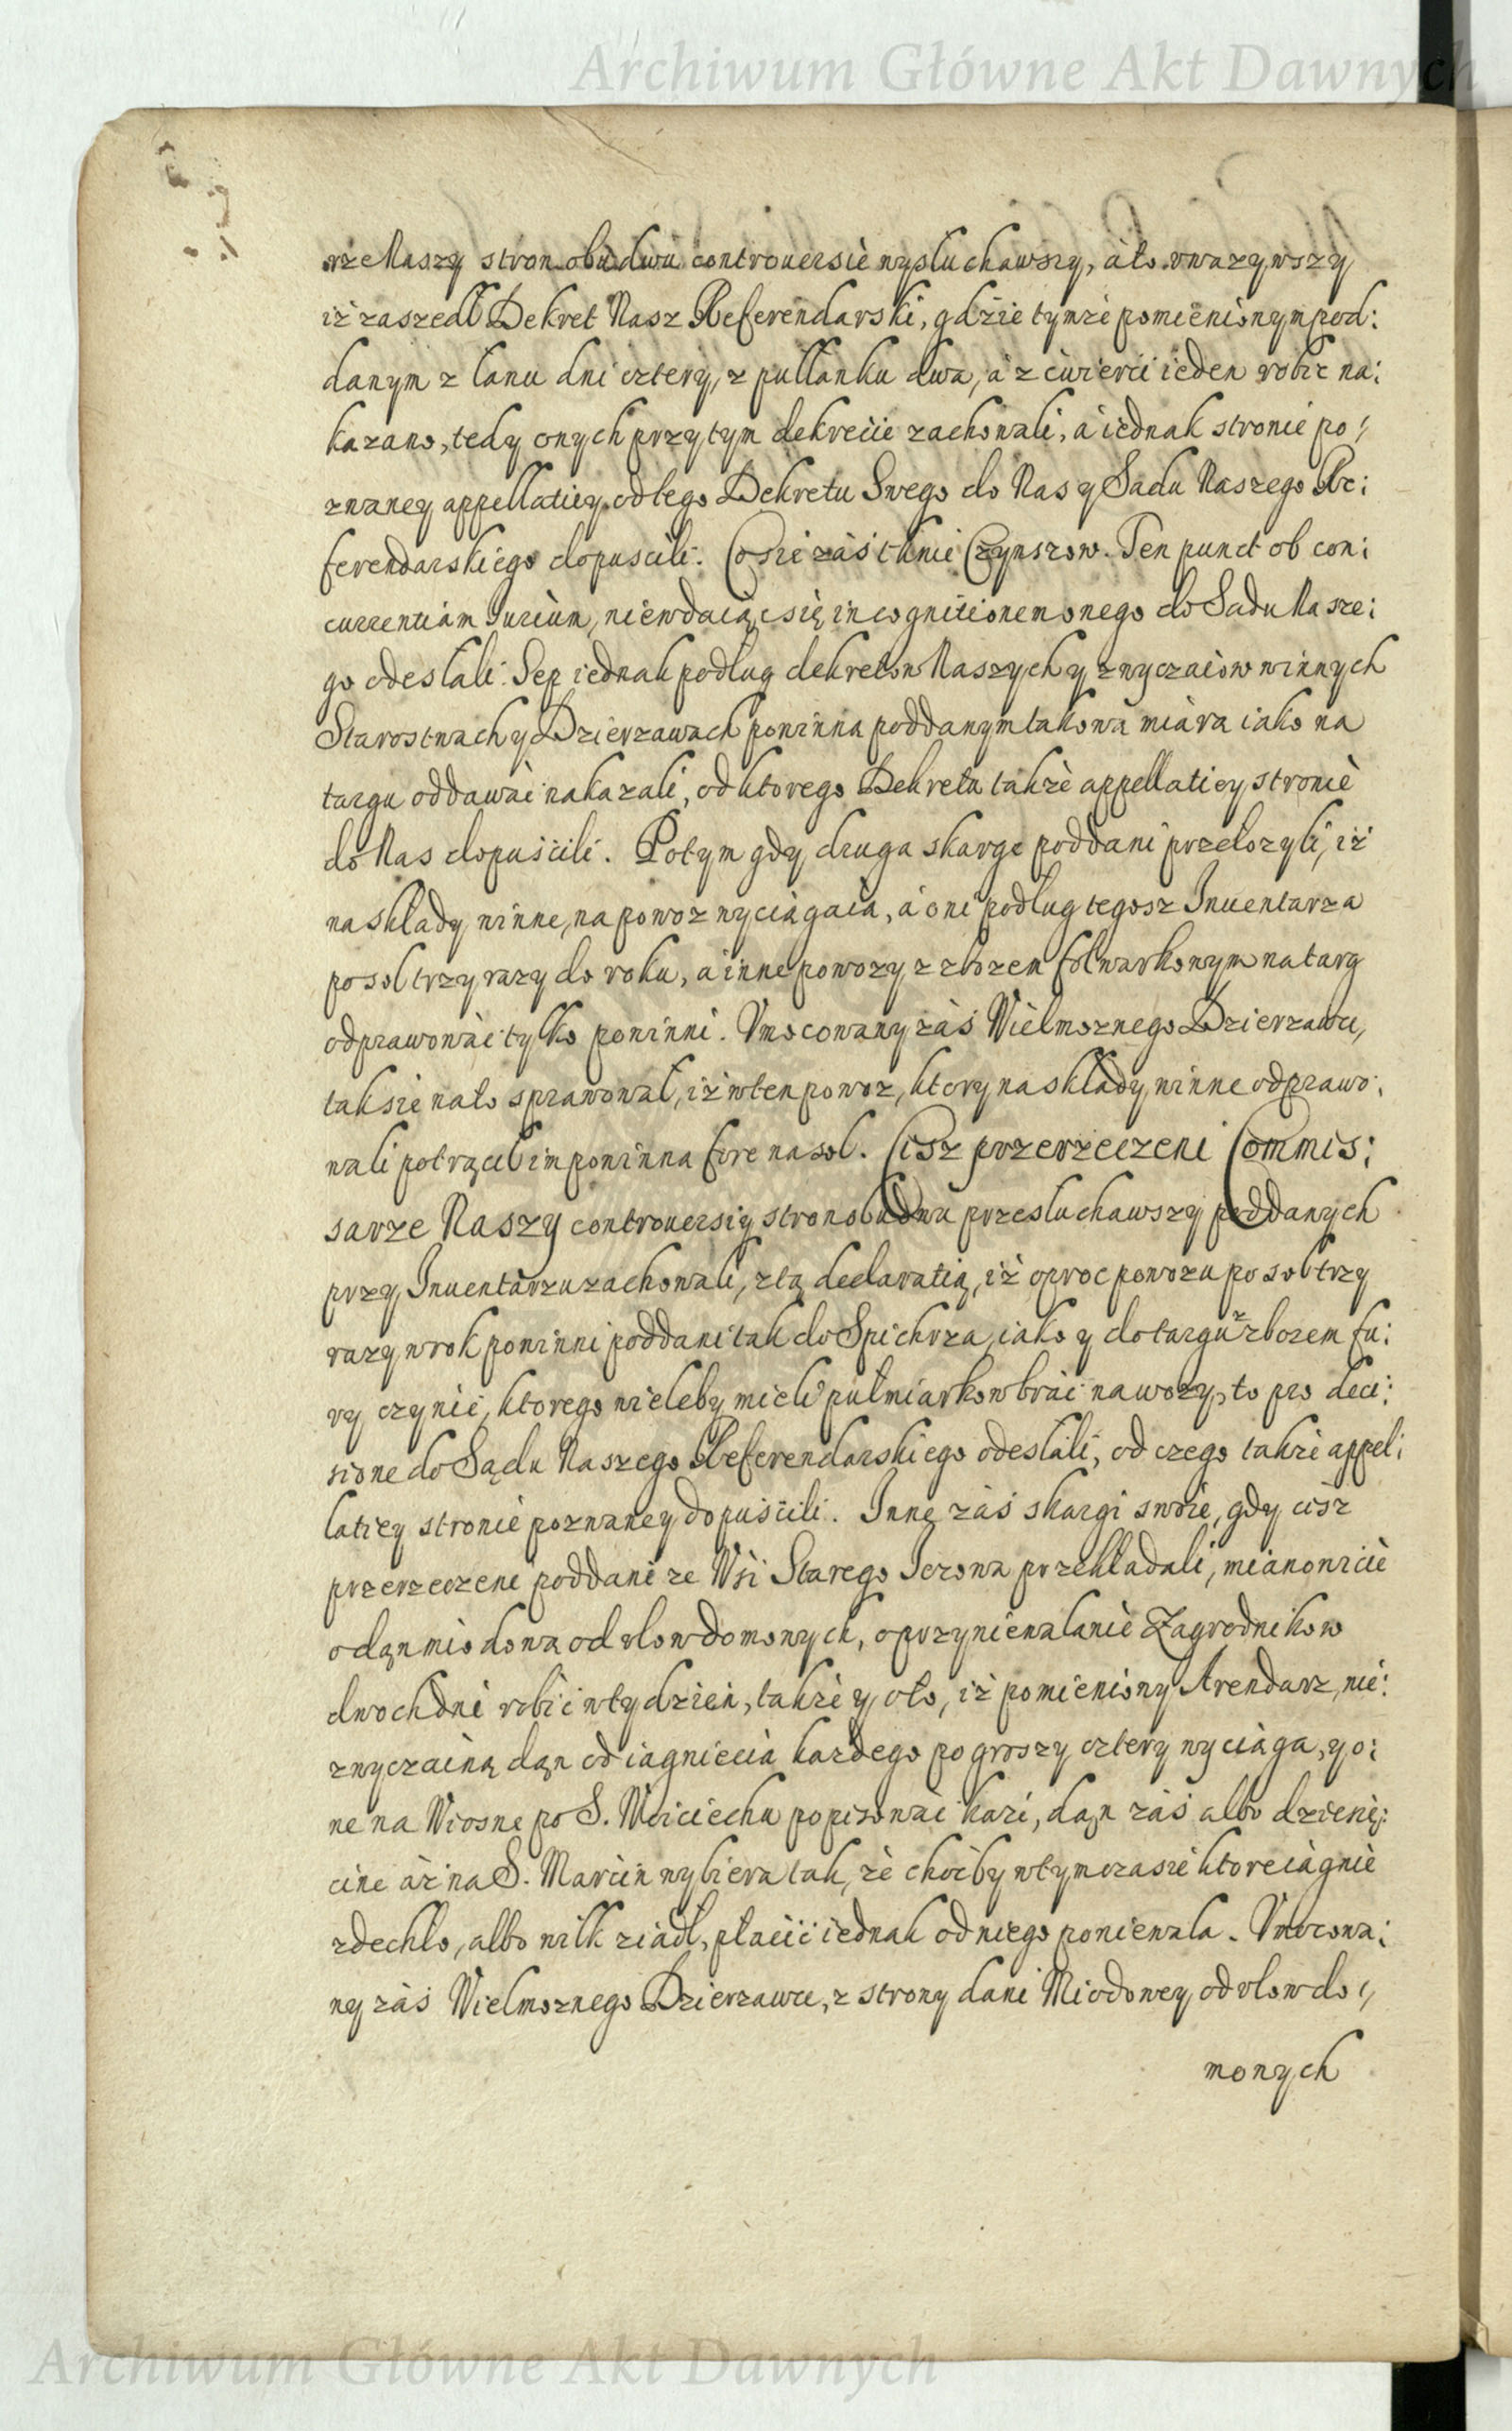 Archiwum Główne Akt Dawnych
rze Naszy stron obudwu controuersie wysluchawszy, a to vwazywszy
iż zaszedł Dekret Nasz Referendarski, gdzie tymże pomienionym pod:
danym z łanu dni cztery, z pułłanku dwa, á z ćwierci ieden robic na:
kazano, tedy onych przy tym dekrecie zachowali, á iednak stronie po:
zwaney appellatiey od tego Dekretu Swego do Nas y Sadu Naszego Re:
ferendarskiego dopuscili. Co sie záś tknie Czynszow. Ten punct ob con:
currentiam Iurium, niewdaiąc się in cognitionem onego do Sadu Nasze:
go odesłali. Sep iednak podług dekretow Naszych y zwyczaiow w innych
Starostwach y Dzierzawach powinna poddanym takowa miara iako na
targu oddawać nakazali, od ktorego Dekretu także appellatiey stronie
do Nas dopuścili. Potym gdy druga skargę poddani przełozyli, iż
na składy winne, na powoz wyciągaia, á oni podług tegosz Inuentarza
po sol trzy razy do roku, a inne powozy z zbozem folwarkowym na targ
odprawowac tylko powinni. Vmocowany záś Wielmoznego Dzierzawcę,
tak sie na to sprawował, iż w ten powoz, ktory na składy winne odprawo:
wali potrącił im powinna forę na sol. Cisz przerzeczeni Commis:
sarze Naszy controuersiy stron obudwu przesluchawszy poddanych
przy Inuentarzu zachowali, z tą declaratią, iż oproc powozu po sol trzy
razy w rok powinni poddani tak do Spichrza, iako y do targu z zbozem fu:
ry czynić, ktorego wieleby mieli pułmiarkow brać na wozy, to pro deci:
sione do Sądu Naszego Referendarskiego odesłali, od czego także appel:
latiey stronie pozwaney dopuścili. Inne záś skargi swoie, gdy cisz
przerzeczeni poddani ze Wsi Starego Iezowa przekładali, mianowicie
o dąn miodowa od ulow domowych, o przyniewalanie Zagrodnikow
dwoch dni robić w tydzien, także y o to, iż pomieniony Arendarz, nie:
zwyczaina dąn od iagniecia kazdego po groszy cztery wyciąga, y o:
ne na Wiosne po S. Woiciechu popisować każe, dąn záś albo dziesię:
cine áż na S. Marcin wybiera tak, że choćby w tym czasie ktore iagnie
zdechło, albo wilk ziadł, płacić iednak od niego poniewala. Vmocowa:
ny záś Wielmoznego Dzierzawce, z strony dani Miodowey od vlow do:
mowych
Archiwum Główne Akt Dawnych